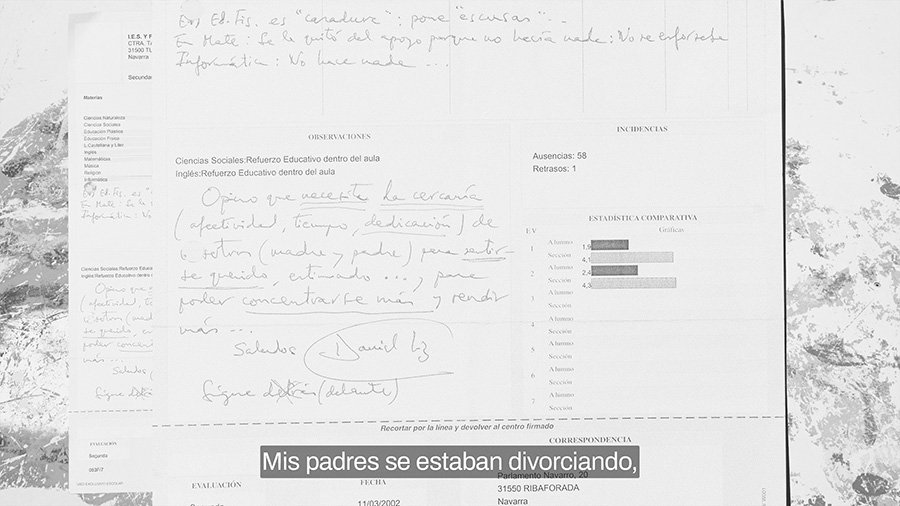 En Ed. Fis. es "caradura": pone "escusas"...
En Mate: Se le quitó del apoyo porque no hacía nada: No se esforzaba
Informática: No hace nada ...
I.E.S. Y F
CTRA. TA
31500 TU
Navarra
Secundar
Materias
Ciencias Naturaleza
Ciencias Sociales
Educación Plástica
Educación Física
L.Castellana y Liter
Inglés
Matemáticas
Música
Religión
Informática
OBSERVACIONES
Ciencias Sociales:Refuerzo Educativo dentro del aula
Inglés:Refuerzo Educativo dentro del aula
Opino que necesita la cercanía
(afectividad, tiempo, dedicación) de
(madre y padre) para sentir-
se querido, estimado ..., para
poder concentrarse más y rendir
más ...
Saludos Daniel
Sigue detrás (delante)
INCIDENCIAS
Ausencias: 58
Retrasos: 1
ESTADÍSTICA COMPARATIVA
EV Gráficas
1 Alumno 1,9
Sección 4,1
2 Alumno 2,4
Sección 4,3
3 Alumno
Sección
4 Alumno
Sección
5 Alumno
Sección
6 Alumno
Sección
7 Alumno
Sección
Recortar por la línea y devolver al centro firmado
EVALUACIÓN
Segunda
CORRESPONDENCIA
Parlamento Navarro, 20
31550 RIBAFORADA
Navarra
EVALUACIÓN
FECHA
11/03/2002
Mis padres se estaban divorciando,